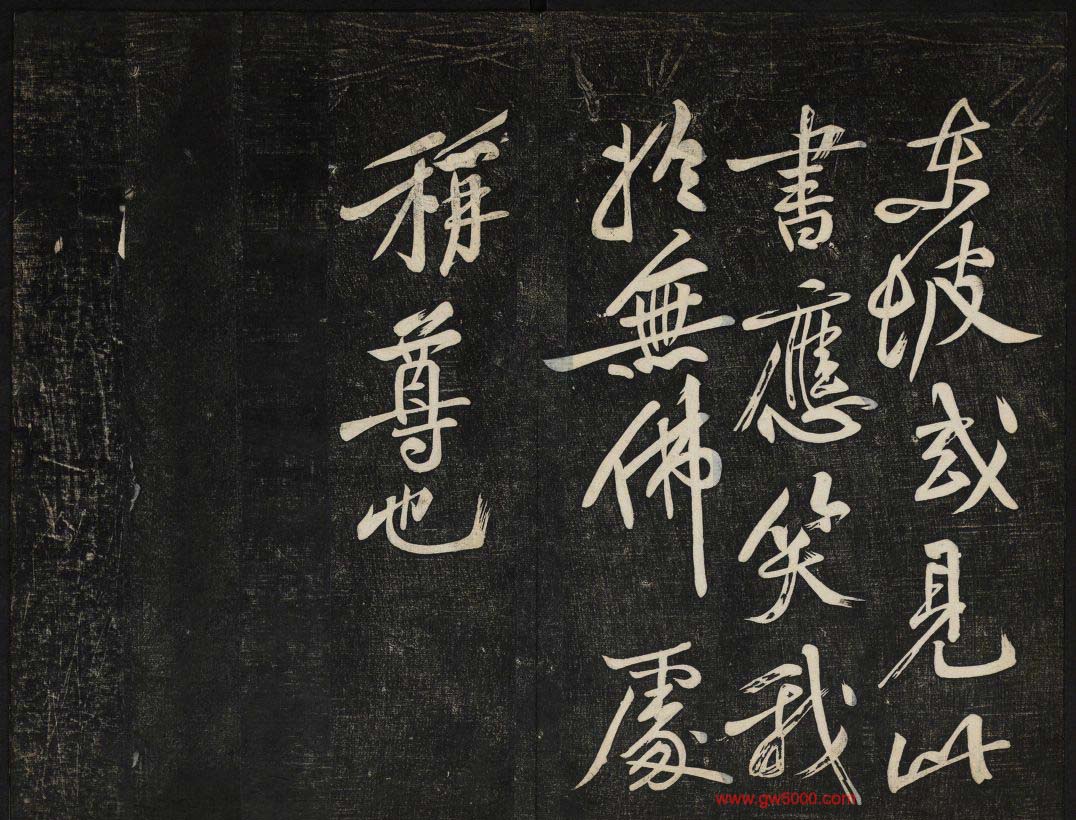 東坡或見此
書應笑我
於無佛處
稱尊也
www.gw5000.com